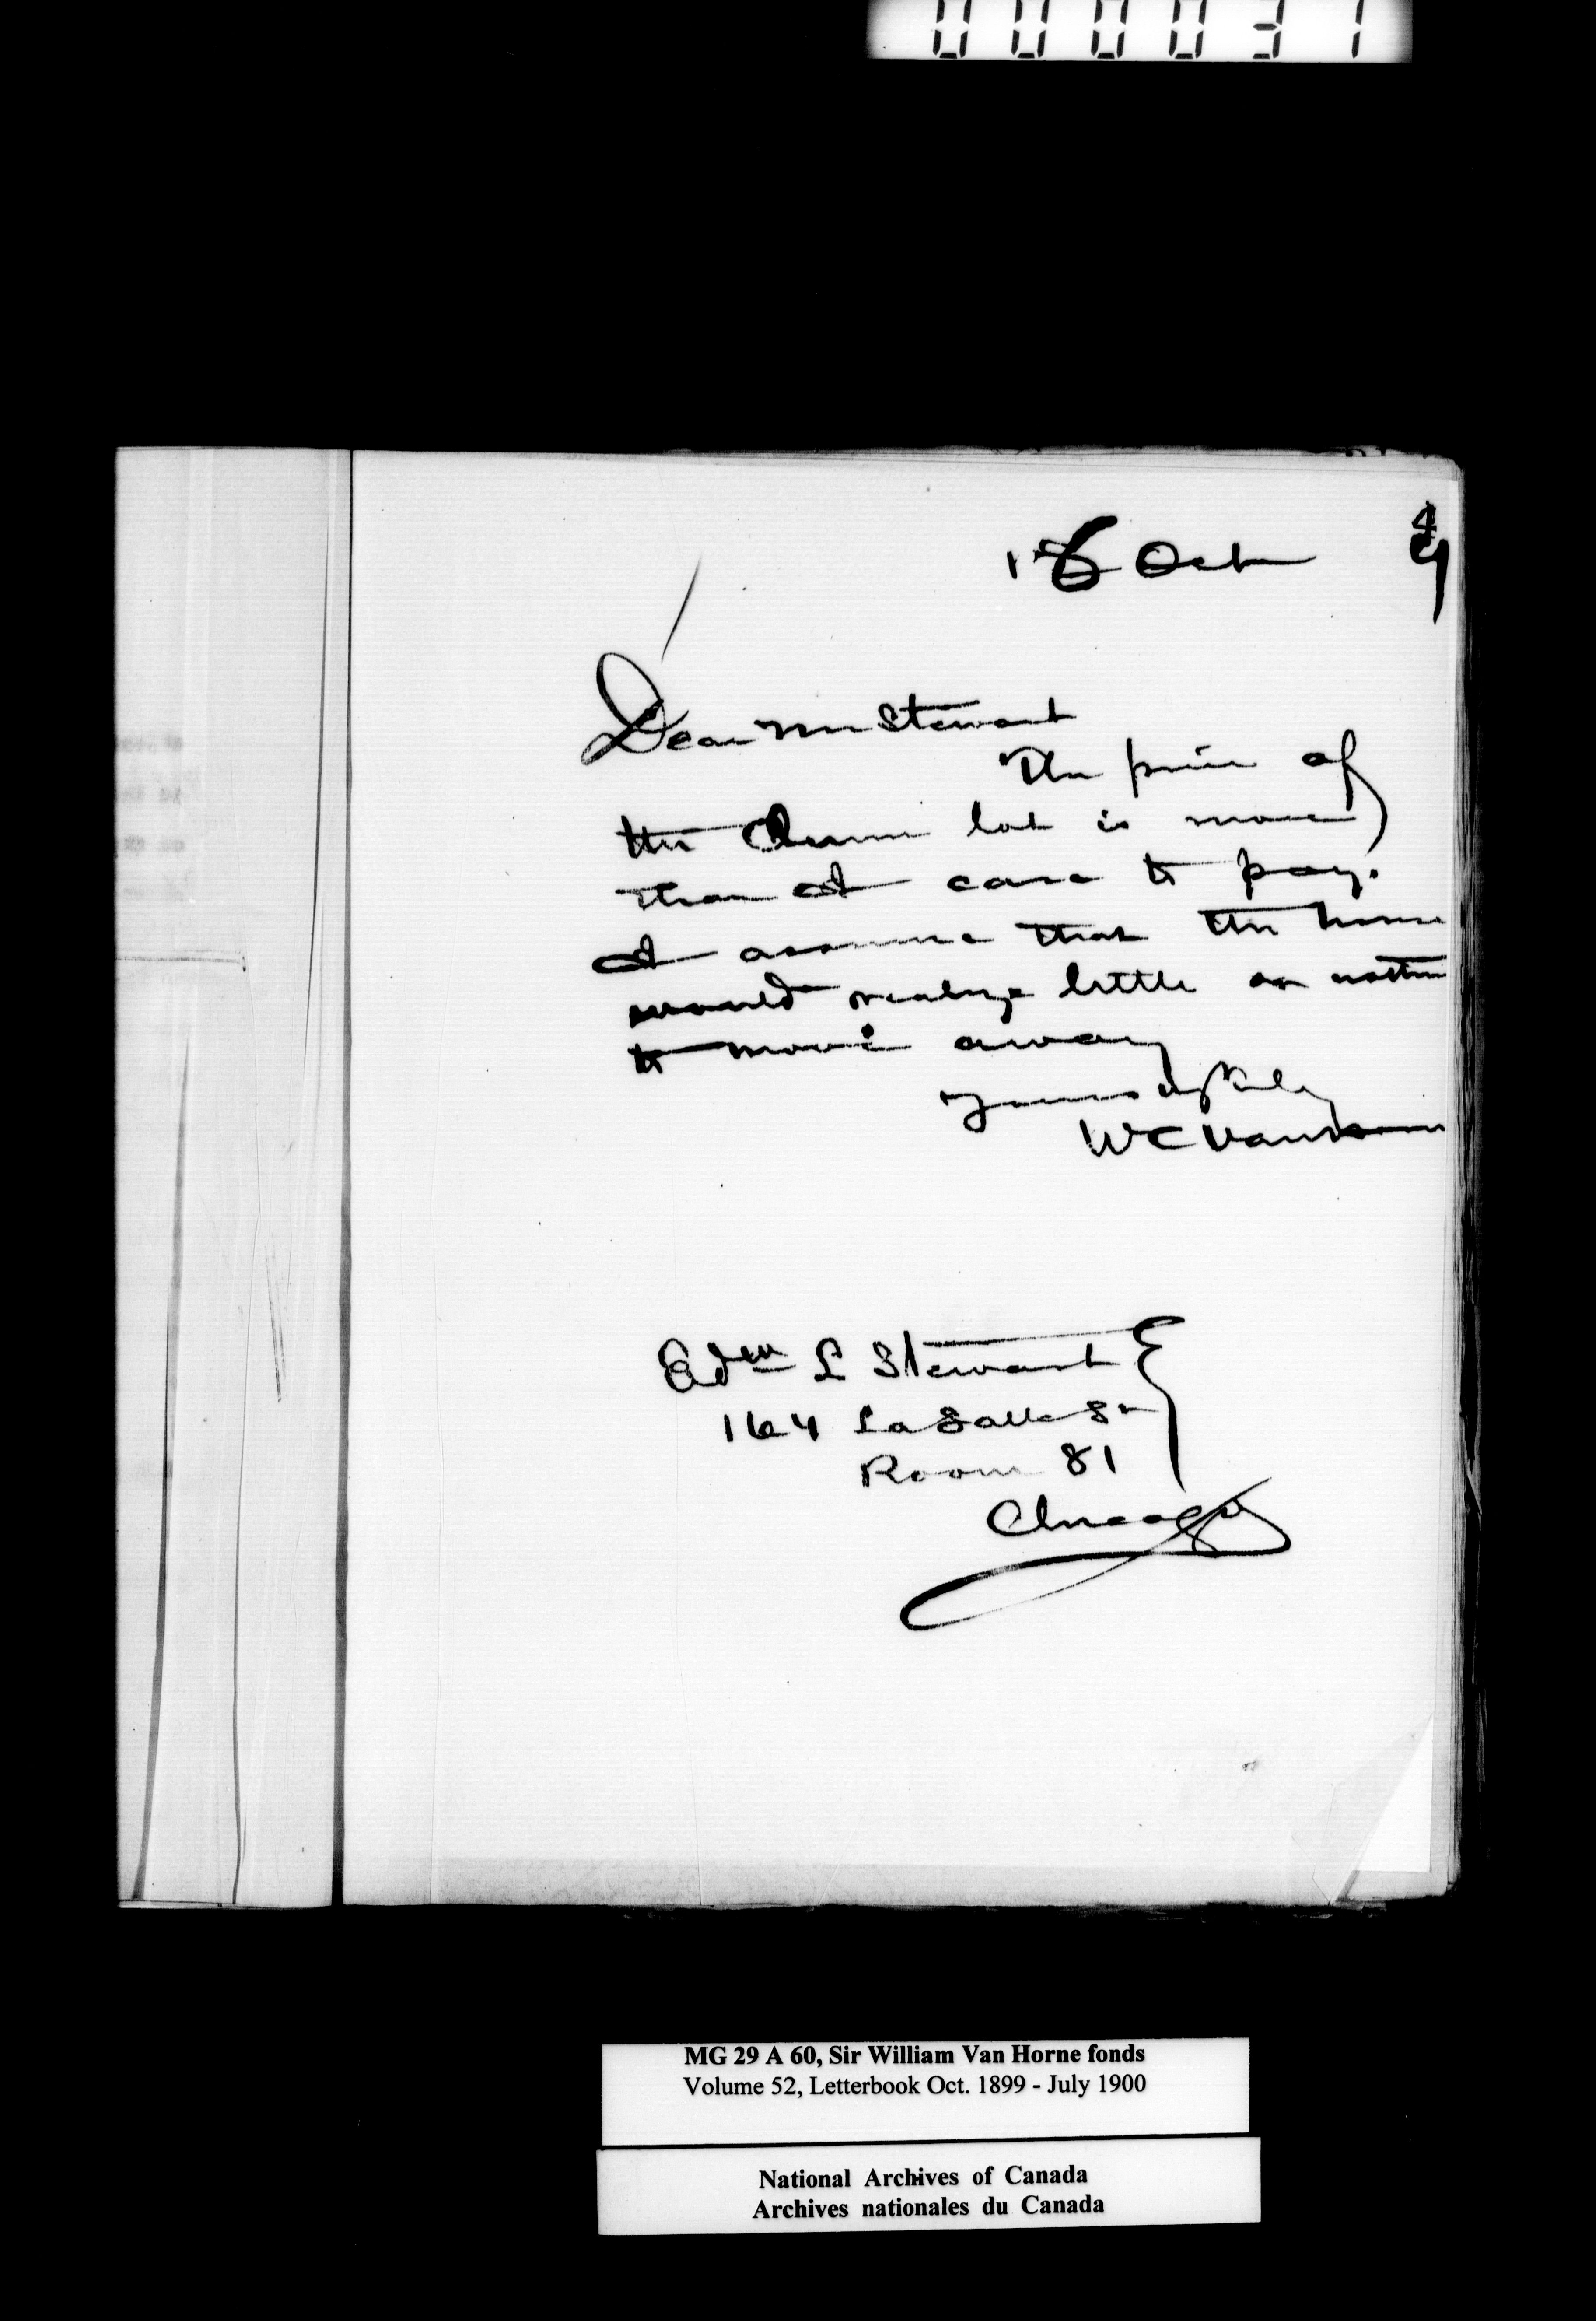 000031
4
18 Oct 9
Dear Mr Stewart
The price of
the lot is more
than I care to pay.
I assume that the house
would realize little or nothin
to move away
Yours truly
WC VanHorn
Edw L Stewart
164 LaSalle St
Room 81
Chicago
MG 29 A 60, Sir William Van Horne fonds
Volume 52, Letterbook Oct. 1899 - July 1900
National Archives of Canada
Archives nationales du Canada